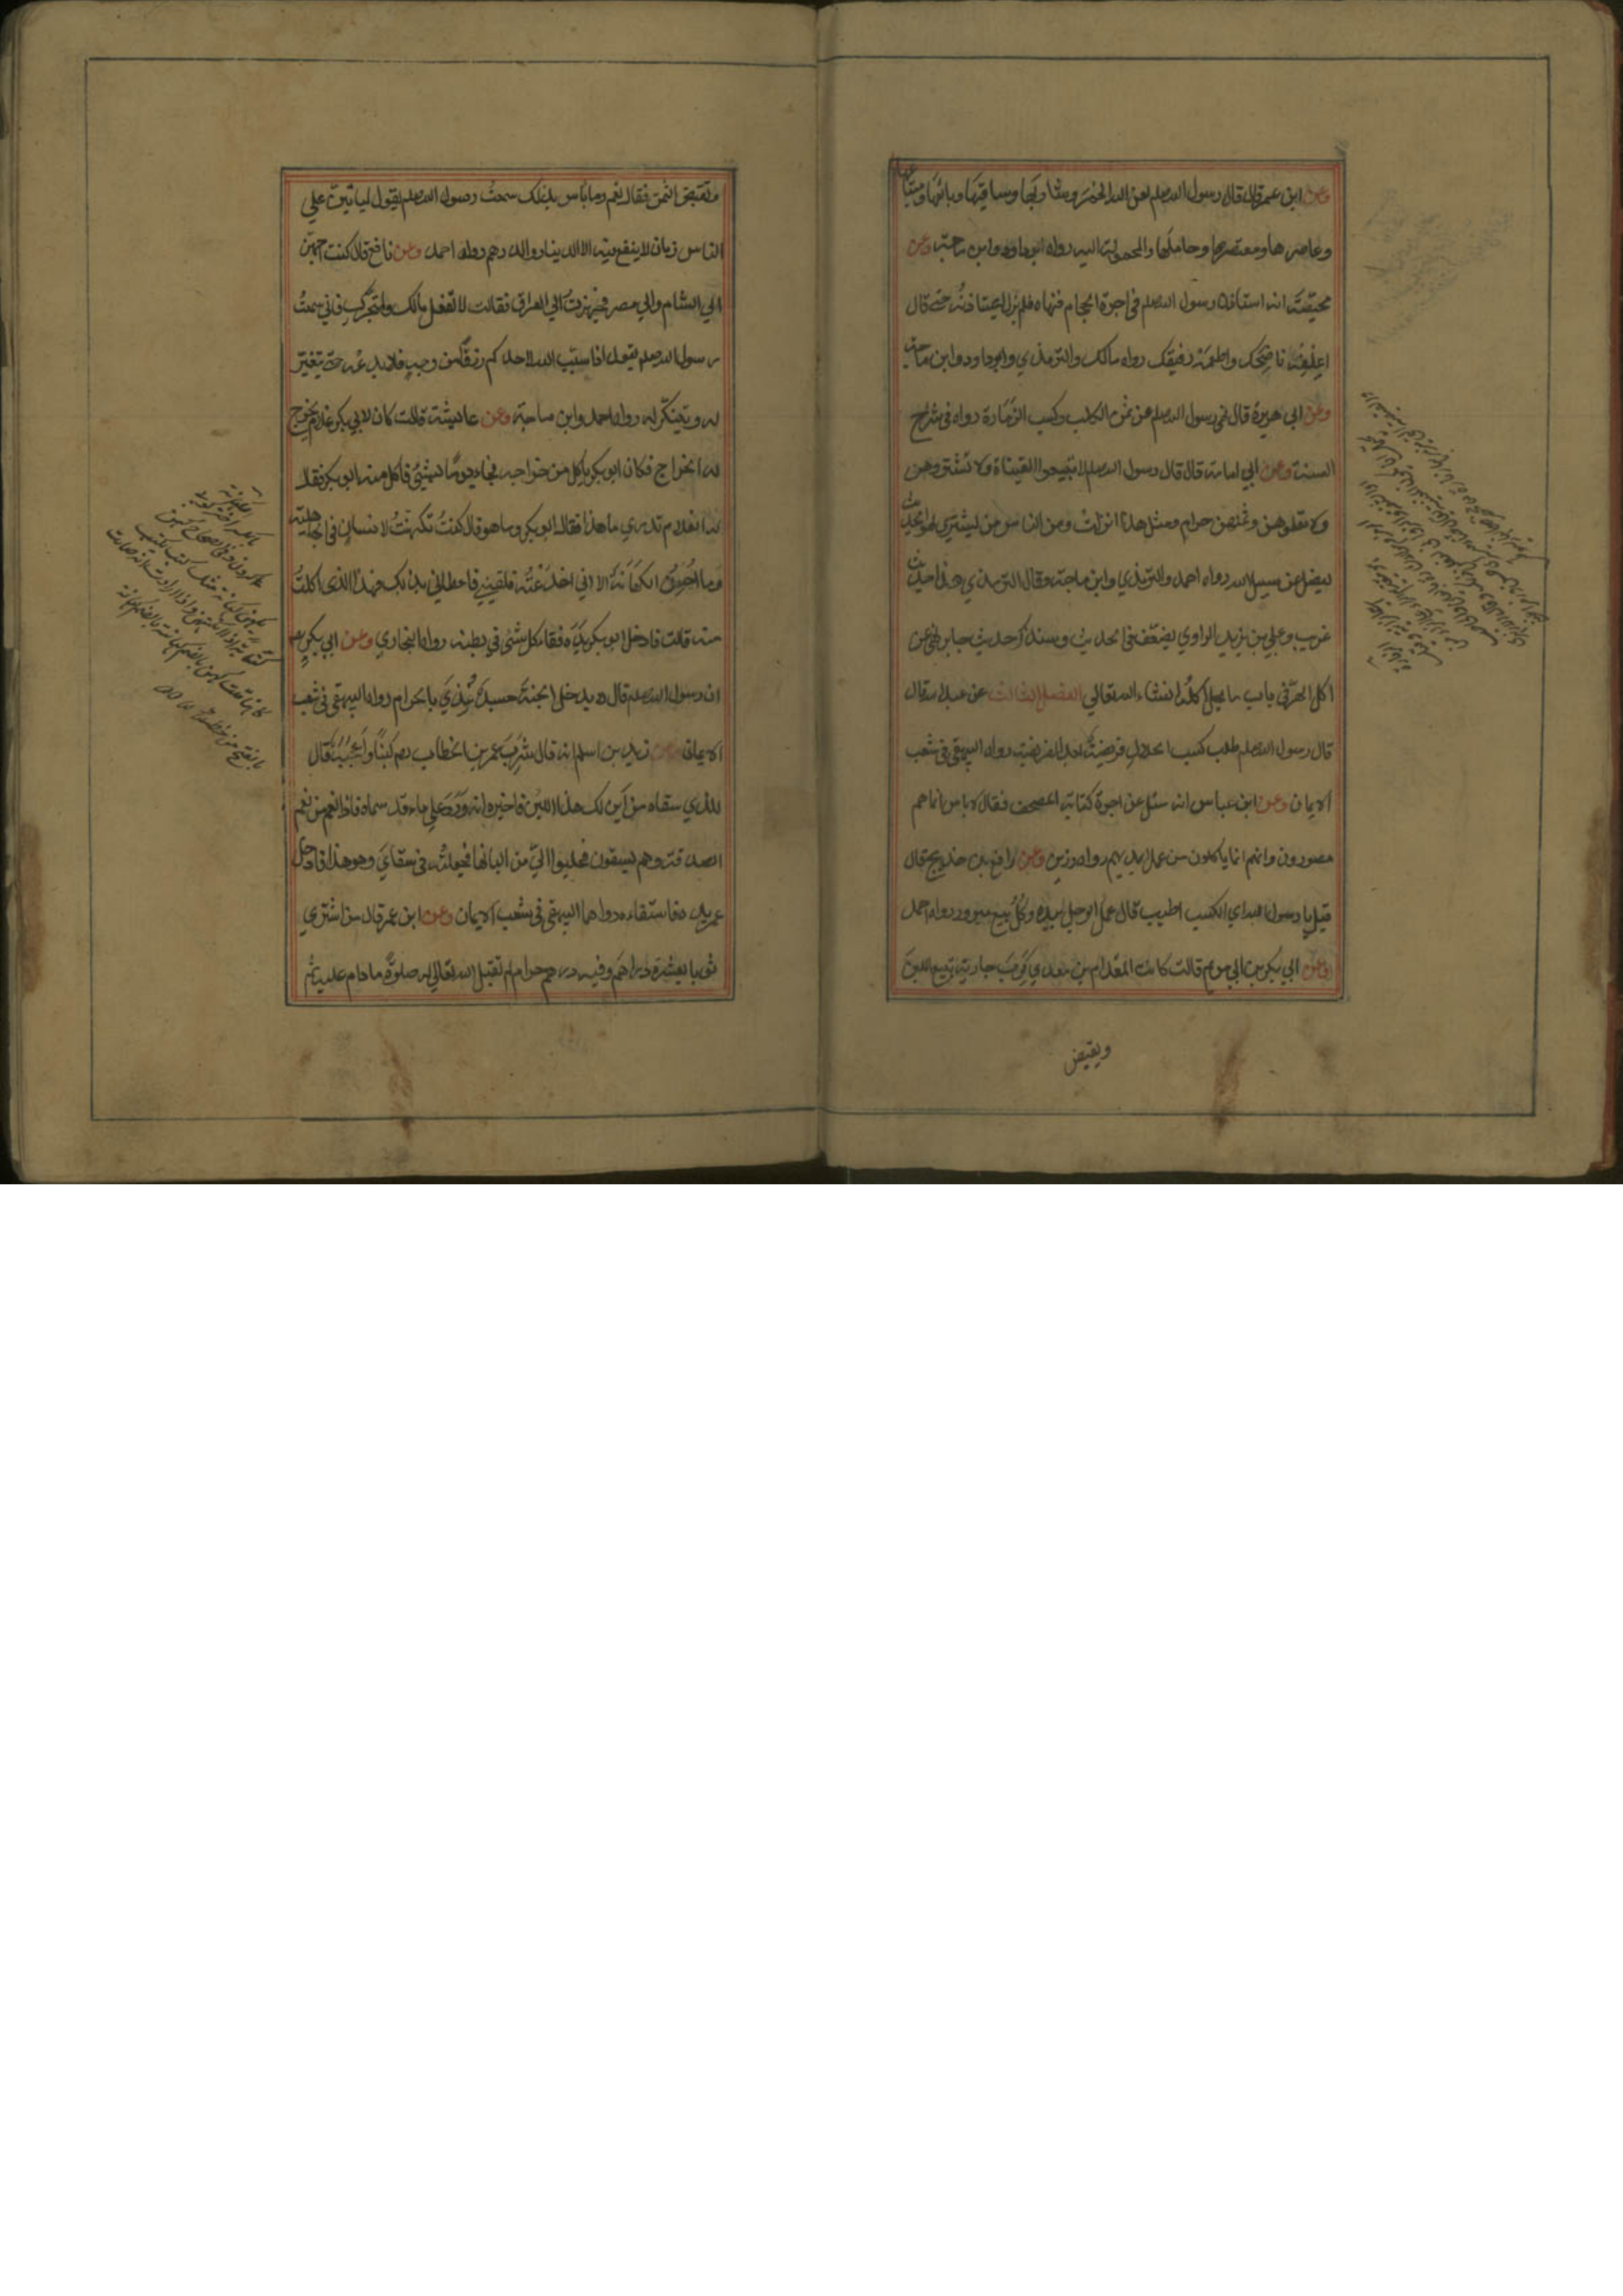 وعن ابن عمر قال قال رسول الله صلعم لعن الله الخمر وشاربها وساقيها وبائعها ومبتاعها
وعاصرها ومعتصرها وحاملها والمحمولة اليه رواه ابوداود وابن ماجة وعن
محيصة انه استاذن رسول الله صلعم في اجرة الحجام فنهاه فلم يزل يستاذنه حتى قال
اعلفه ناضحك واطعمه رقيقك رواه مالك والترمذي وابوداود وابن ماجة
وعن ابي هريرة قال نهى رسول الله صلعم عن ثمن الكلب وكسب الزمارة رواه في شرح
السنة وعن ابي امامة قال قال رسول الله صلعم لا تبيعوا القينات ولا تشتروهن
ولا تعلموهن وثمنهن حرام ومثل هذا انزلت ومن الناس من يشتري لهو الحديث
ليضل عن سبيل الله رواه احمد والترمذي وابن ماجة وقال الترمذي هذا حديث
غريب وعلي بن يزيد الراوي يضعف في الحديث وسنذكر حديث جابر نهى عن
اكل الهر في باب ما يحل اكله انشاء الله تعالي الفصل الثالث عن عبد الله قال
قال رسول الله صلعم طلب كسب الحلال فريضة بعد الفريضة رواه البيهقي في شعب
الايمان وعن ابن عباس انه سئل عن اجرة كتابة المصحف فقال لا باس انما هم
مصورون وانهم انما ياكلون من عمل ايديهم رواه رزين وعن رافع بن خديج قال
قيل يا رسول الله اي الكسب اطيب قال عمل الرجل بيده وكل بيع مبرور رواه احمد
وعن ابي بكر بن ابي مريم قالت كانت لمقدام بن معدي كرب جارية تبيع اللبن
ويقبض
ويقبض الثمن فقال نعم وما باس بذلك سمعت رسول الله صلعم يقول لياتين علي
الناس زمان لا ينفع فيه الا الدينار والدرهم رواه احمد وعن نافع قال كنت اجهز
الي الشام والي مصر فجهزت الي العراق فقالت لا تفعل مالك ولمتجرك فاني سمعت
رسول الله صلعم يقول اذا سبب الله لاحدكم رزقا من وجه فلا يدعه حتى يتغير
له او يتنكر له رواه احمد وابن ماجة وعن عايشة قالت كان لابي بكر غلام يخرج
له الخراج فكان ابو بكر ياكل من خراجه فجاء يوما بشيئ فاكل منه ابو بكر فقال
له الغلام تدري ما هذا فقال ابو بكر وما هو قال كنت تكهنت لانسان في الجاهلية
وما احسن الكهانة الا اني خدعته فلقيني فاعطاني بذلك فهذا الذي اكلت
منه قالت فادخل ابو بكر يده فقاء كل شئ في بطنه رواه البخاري وعن ابي بكر
ان رسول الله صلعم قال لا يدخل الجنة جسد غذي بالحرام رواه البيهقي في شعب
الايمان وعن زيد بن اسلم انه قال شرب عمر بن الخطاب رضي لبنا واعجبه قال
للذي سقاه من اين لك هذا اللبن فاخبره انه ورد علي ماء قد سماه فاذا نعم من نعم
الصدقة وهم يسقون فحلبوا الي من البانها فجعلته في سقاي وهو هذا فادخل
عمر يده فاستقاءه رواهما البيهقي في شعب الايمان وعن ابن عمر قال من اشتري
ثوبا بعشرة دراهم وفيه درهم حرام لم تقبل الله تعالي له صلوة ما دام عليه ثم